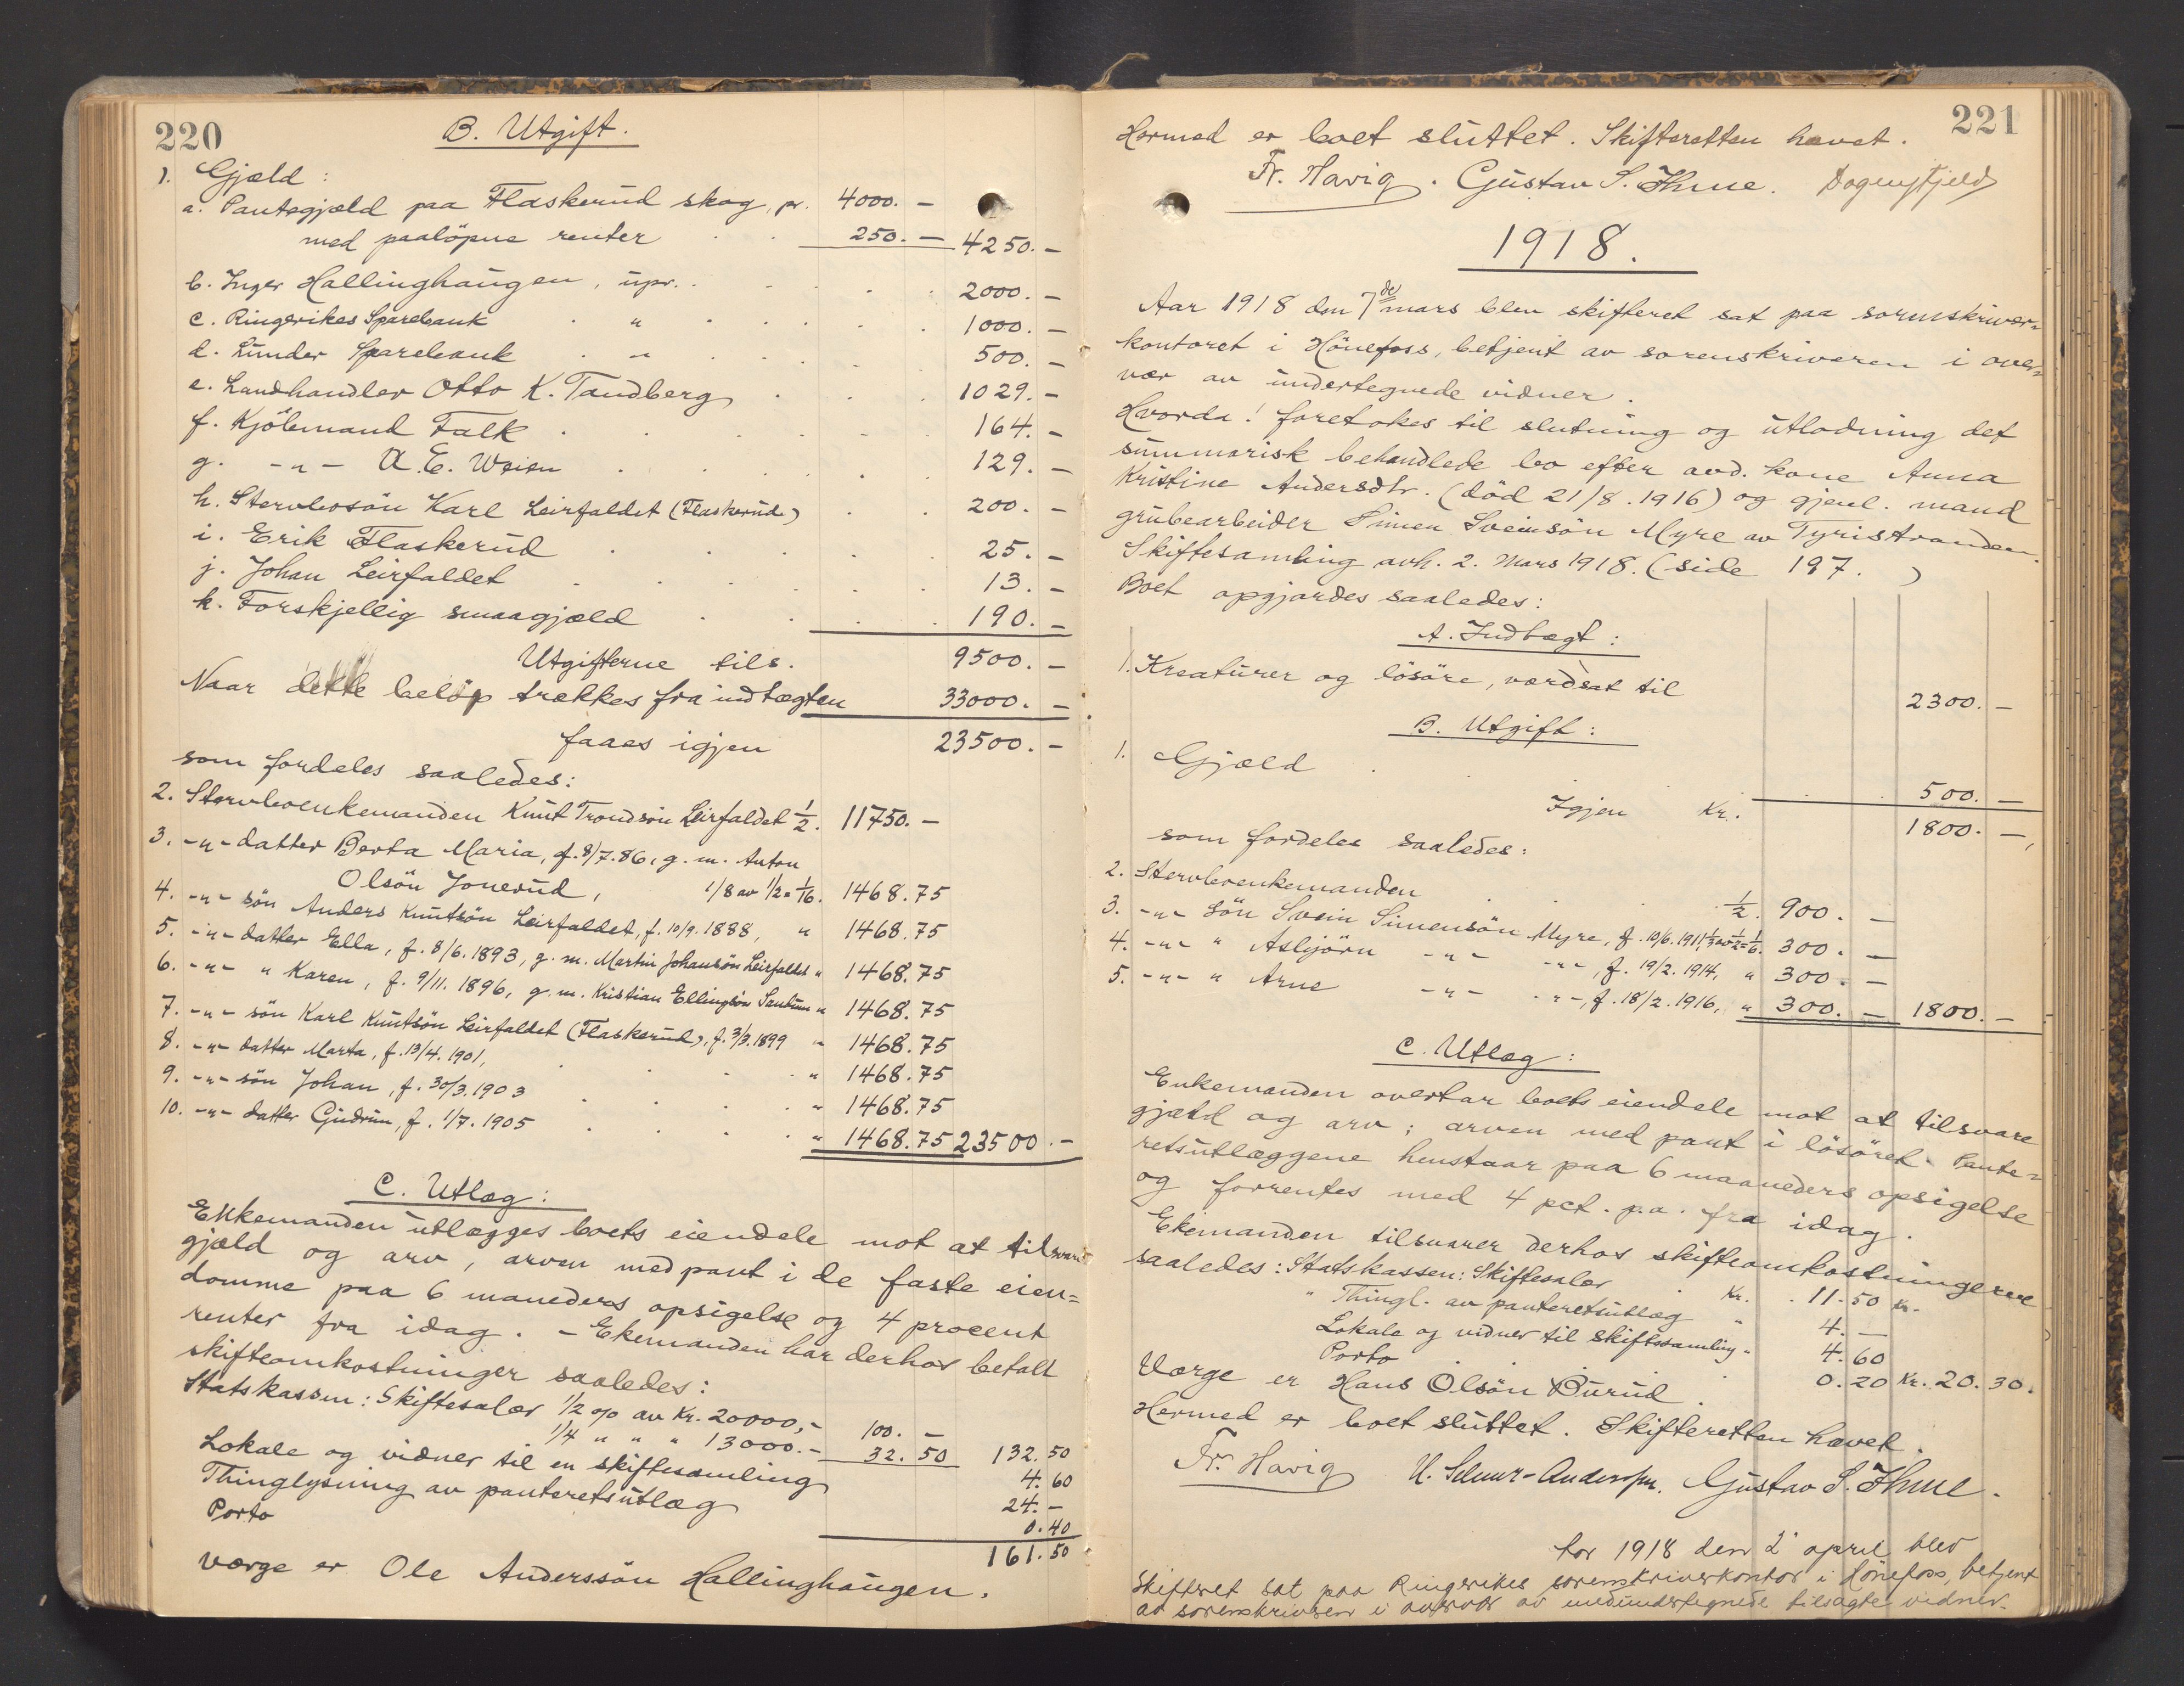 220
B. Utgift.
1. Gjæld:
a. Pantegjæld paa Flaskerud skog, pr. 4000. –
med paaløpne renter . . 250. – 4250. –
b. Inger Hallinghaugen, upr. . . . . 2000. –
c. Ringerikes Sparebank . " . . . . 1000. –
d. Lunder Sparebank . " . . . . 500. –
e. Landhandler Otto K. Tandberg . . . 1029. –
f. Kjöbmand Falk . . . . . 164. –
g. -"- A. E. Weien . . . . 129. –
h. Stervbosön Karl Leirfaldet (Flaskerud) . . 200. –
i. Erik Flaskerud . . . . . 25. –
j. Johan Leirfaldet . . . . . 13. –
k. Forskjellig smaagjæld . . . . 190. –
Utgifterne tils. 9500. –
Naar dette beløp trækkes fra indtægten 33000. –
faaes igjen 23500. –
som fordeles saaledes:
2. Stervboenkemanden Knut Trondsön Leirfaldet 1/2. 11750. –
3. -"- datter Berta Maria, f. 8/7.86, g. m. Anton
Olsön Jonerud, 1/8 av 1/2 = 1/16. 1468.75
4. -"- sön Anders Knutsön Leirfaldet, f. 10/9.1888, " 1468.75
5. -"- datter Ella, f. 8/6.1893, g. m. Martin Johansön Leirfaldet " 1468.75
6. -"- " Karen, f. 9/11.1896, g. m. Kristian Ellingsön " 1468.75
7. -"- sön Karl Knutsön Leirfaldet (Flaskerud), f. 3/3.1899 " 1468.75
8. -"- datter Marta, f. 13/4.1901, . . . " 1468.75
9. -"- sön Johan, f. 30/3.1903 . . . . " 1468.75
10. -"- datter Gudrun, f. 1/7.1905 . . . . " 1468.75 23500. –
C. Utlæg:
Ekkemanden utlægges boets eiendele mot at tilsvare
gjæld og arv, arven med pant i de faste eien=
domme paa 6 maneders opsigelse og 4 procent
renter fra idag. – Ekemanden har derhos betalt
skifteomkostninger saaledes:
Statskassen: Skiftesalær 1/2 % av Kr. 20000,- 100. –
1/4 " " " 13000.- 32.50 132.50
Lokale og vidner til en skiftesamling 4.60
Thinglysning av panteretsutlæg 24. –
Porto 0.40
161.50
Værge er Ole Anderssön Hallinghaugen.
221
Hermed er boet sluttet. Skifteretten hævet.
Fr. Havig. Gustav S. Thue.
1918.
Aar 1918 den 7de mars blev skifteret sat paa sorenskriver=
kontoret i Hönefoss, betjent av sorenskriveren i over=
vær av undertegnede vidner.
Hvorda! foretokes til slutning og utlodning det
summarisk behandlede bo efter avd. kone Anna
Kristine Andersdtr. (död 21/8.1916) og gjenl. mand
grubearbeider Simen Sveinsön Myre av Tyristranden.
Skiftesamling avh. 2. Mars 1918. (side 197.)
Boet opgjordes saaledes:
A. Indtægt:
1. Kreaturer og lösöre, værdsat til 2300. –
B. Utgift:
1. Gjæld . . . . 500. –
Igjen Kr. 1800. –
som fordeles saaledes:
2. Stervboenkemanden . . . 1/2. 900. –
3. -"- sön Svein Simensön Myre, f. 10/6.1911, 1/3 av 1/2 = 1/6. 300. –
4. -"- " Asbjörn -"- -"-, f. 19/2.1914, " 300. –
5. -"- " Arne -"- -"-, f. 18/2.1916, " 300. – 1800. –
C. Utlæg:
Enkemanden overtar boets eiendele mot at tilsvare
gjæld og arv; arven med pant i lösöret. Pante=
retsutlæggene henstaar paa 6 maaneders opsigelse
og forrentes med 4 pct. p.a. fra idag.
Ekemanden tilsvarer derhos skifteomkostningerne
saaledes: Statskassen: Skiftesalær . Kr. . 11.50 Kr.
" Thingl. av panteretsutlæg " 4. –
Lokale og vidner til skiftesamling " 4.60
Porto . . . . 0.20 Kr. 20.30.
Værge er Hans Olsön Burud.
Hermed er boet sluttet. Skifteretten hævet.
Fr. Havig Gustav S. Thue.
Aar 1918 den 2. april blev
Skifteret sat paa Ringerikes sorenskriverkontor i Hönefoss, betjent
av sorenskriveren i overvær av medundertegnede tilsagte vidner.